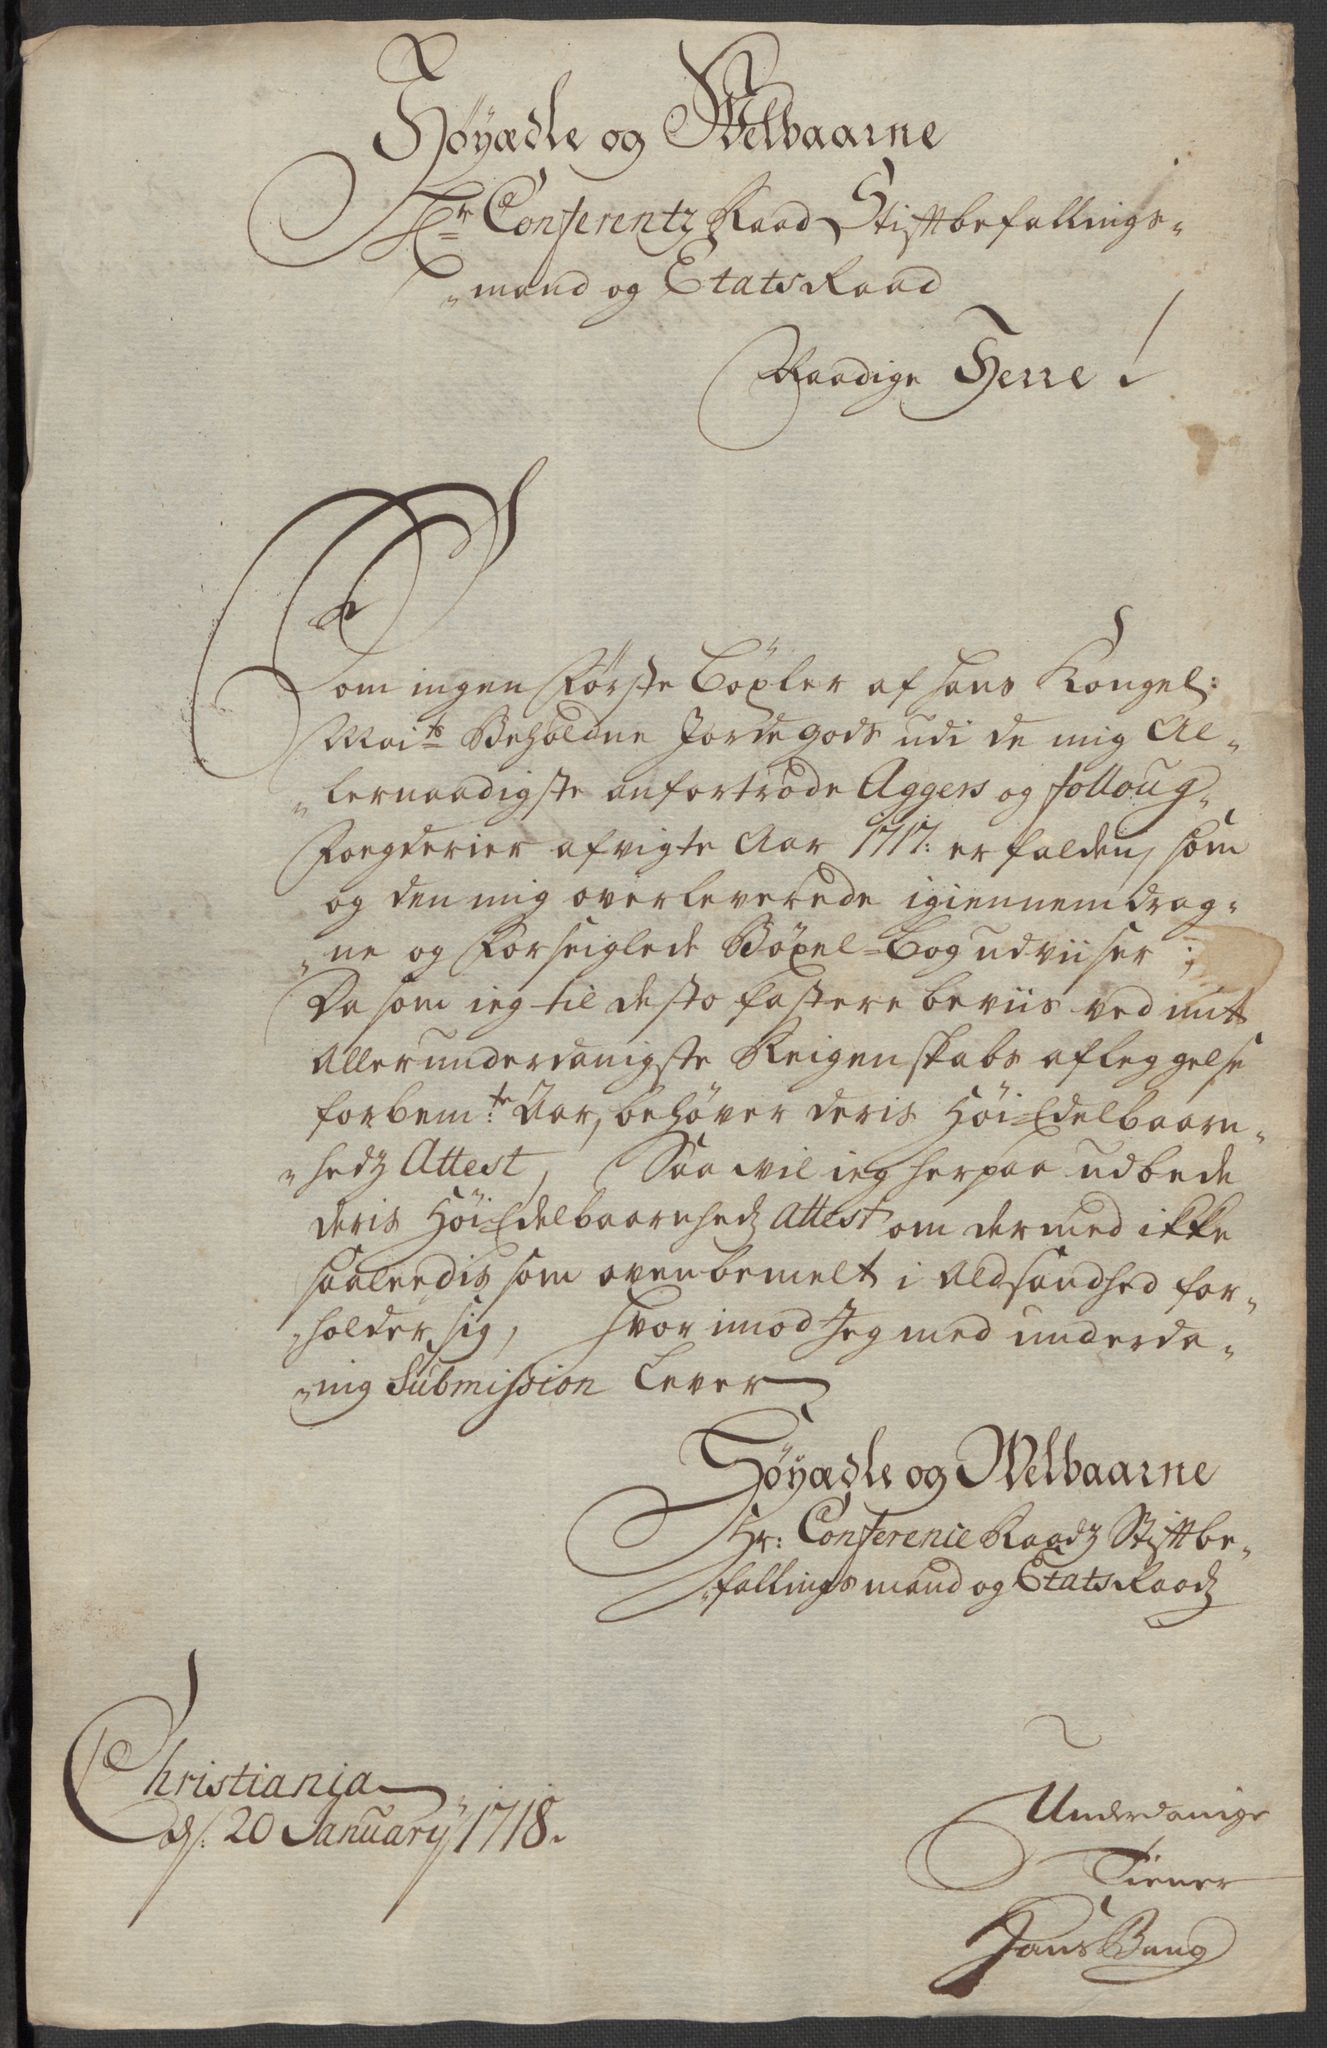 Høyædle og Welbaarne
Hr Conferentz Raad Stiftbefallings-
-mand og Etats Raad
Naadige Herre!
Som ingen Første Böxler af Hans Kongel:
Maits Beholdne Jordegods udi de mig Al-
-lernaadigste anfortrode Aggers og folloug
Foegderier afvigte Aar 1717: er falden, som
og den mig overleverede igiennemdrag-
-ne og Forseiglede Böxel-Bog udviiser;
Da som ieg til desto fastere beviis ved mit
Allerunderdanigste Reigenskabs afleggelse
forbemte Aar, behøver deris Höi-Edelbaarn-
-hedz Attest, Saa wil ieg herpaa udbede
deris Höi-Edelbaarnhedz Attest om dermed ikke
saaleedis som ovenbemelt i Aldsandhed for-
-holder sig, Hvorimod Jeg med underda-
-nig Submission lever
Høyædle og Welbaarne
Hr: Conference Raadz Stiftbe-
-fallings mand og Etats Raadz
Christiania
ds: 20 January 1718.
Underdanige
Tiener
Hans Bang